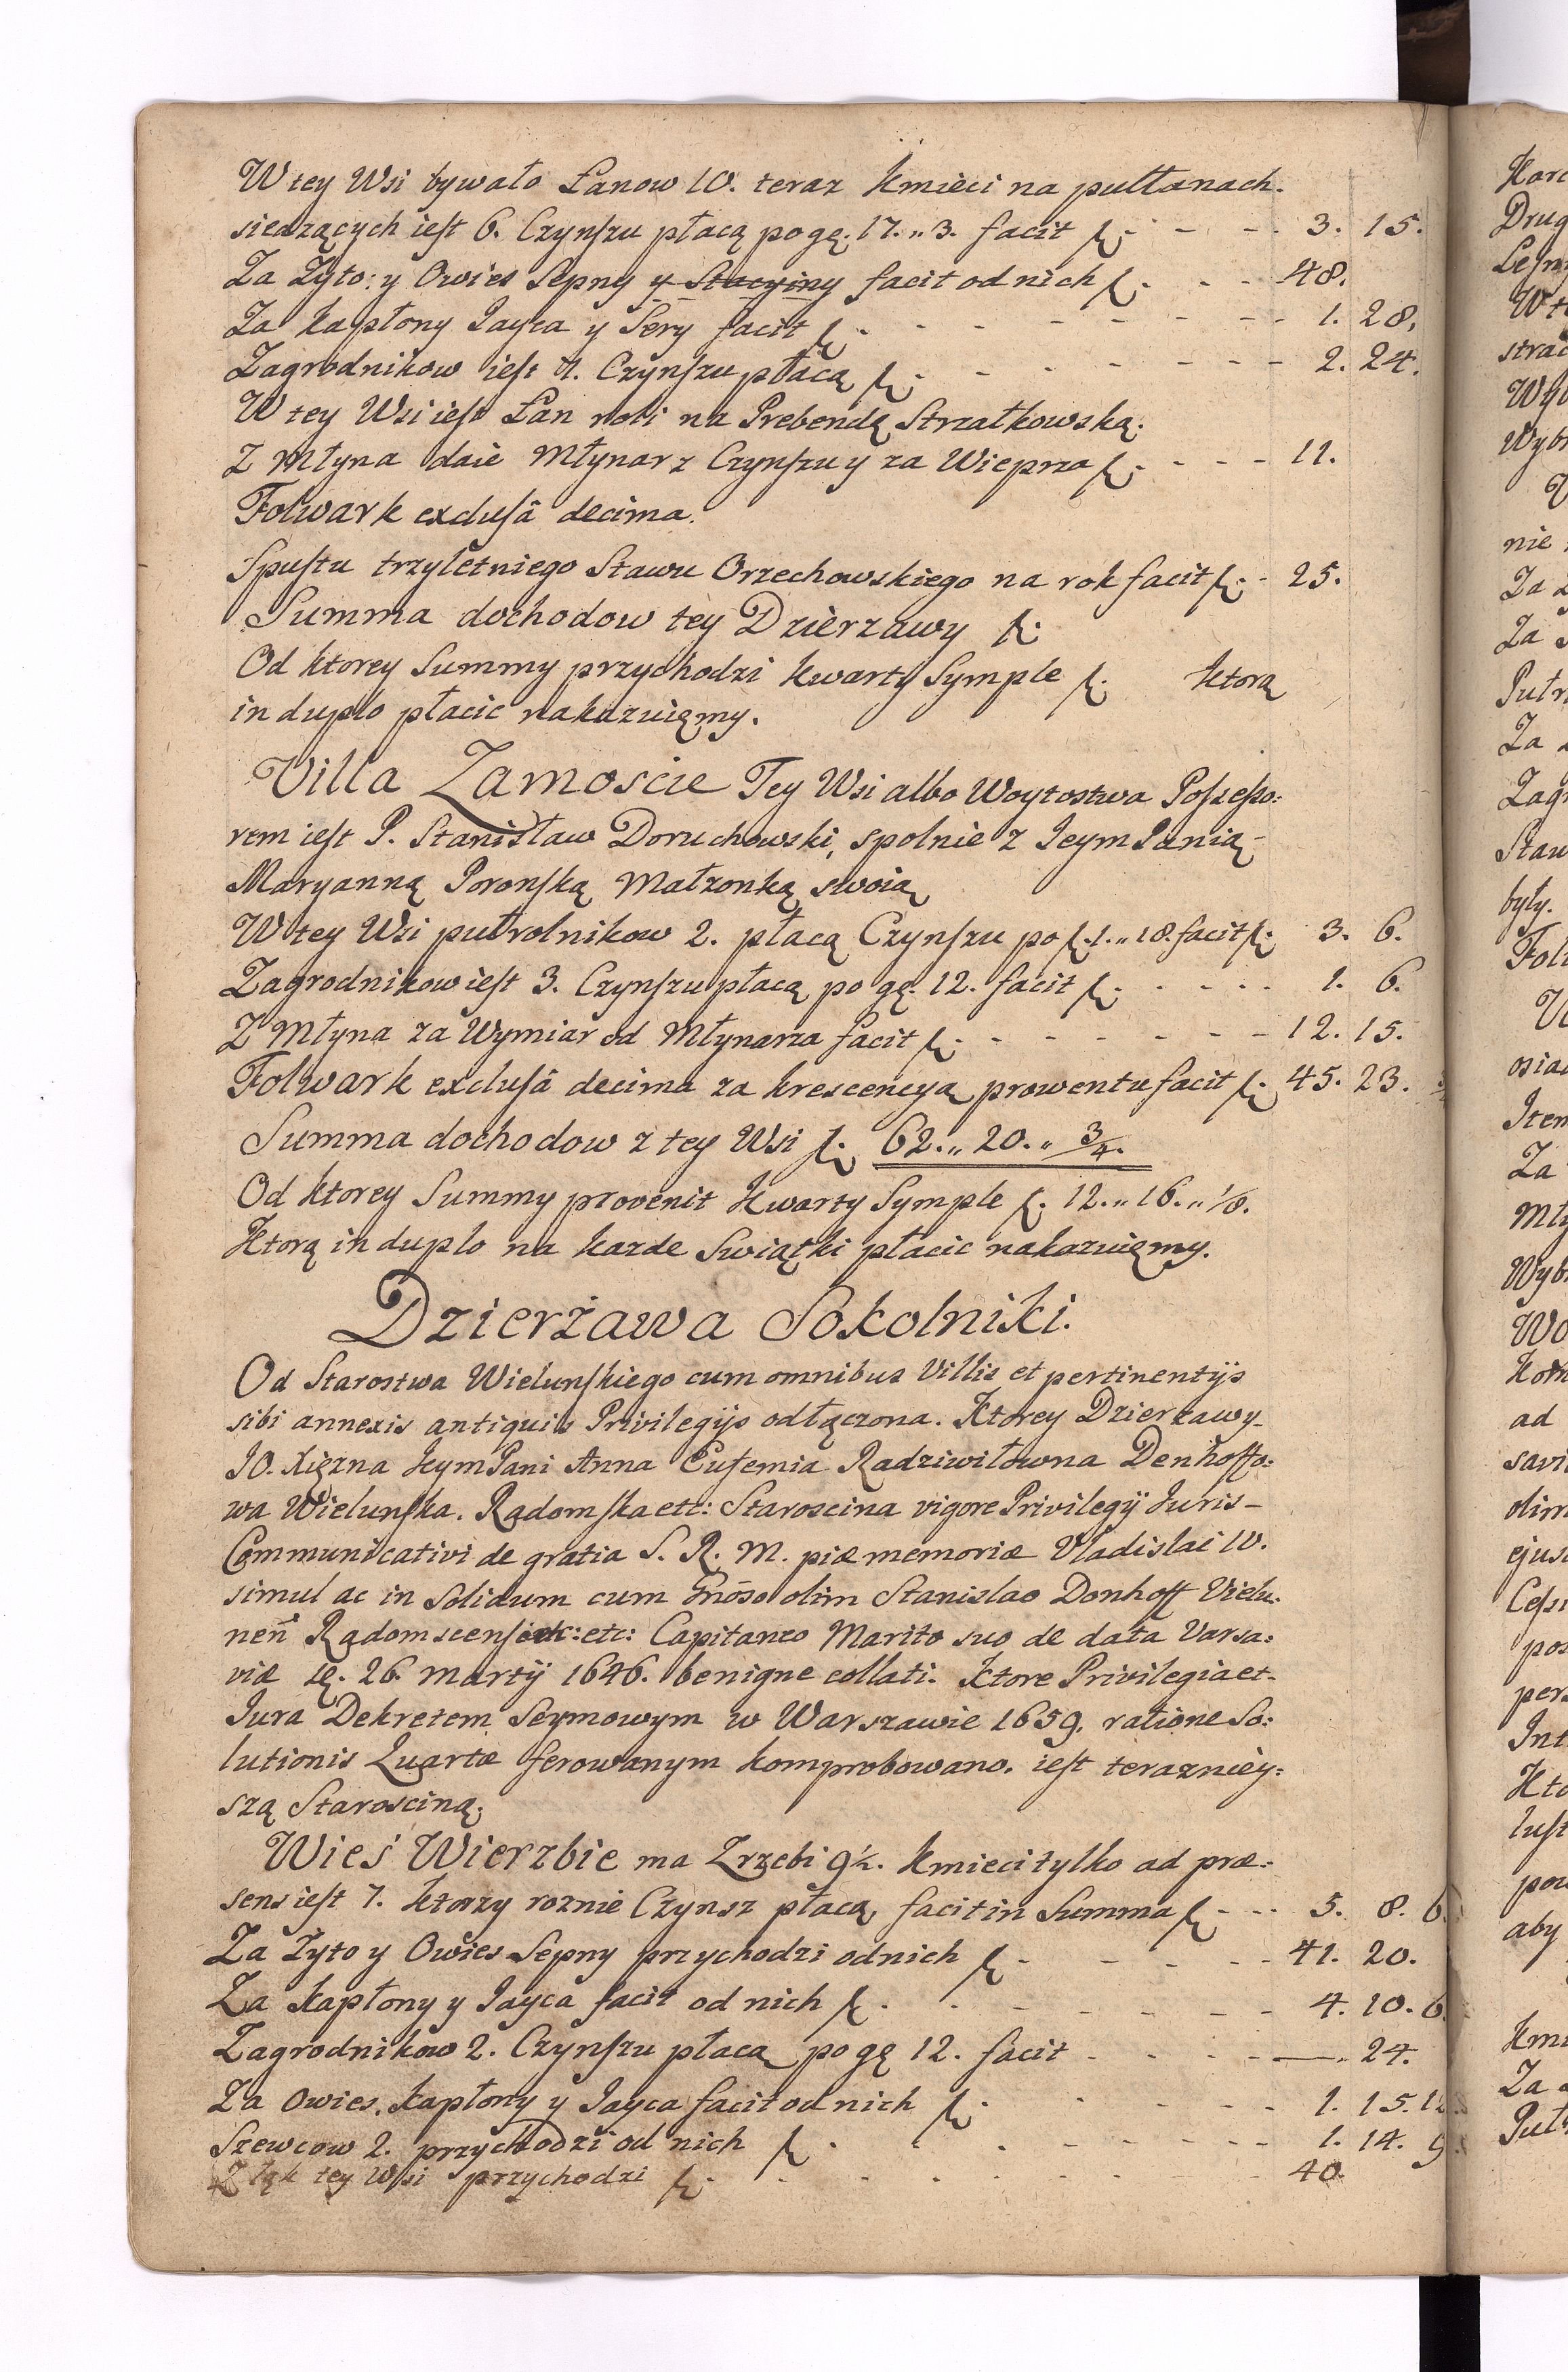 W tey Wsi bywało Łanow 10. teraz kmieci na pułłanach.
siedzących iest 6. Czynszu płacą po gę. 17.„3. facit f. - - - 3. 15.
Za Zyto: y Owies Sepny y Stacyiny facit od nich f. - - - 48.
Za kapłony Jayca y Sery facit f. - - - 1. 28.
Zagrodnikow iest 7. Czynszu płacą f. - - - 2. 24.
W tey Wsi iest Łan roli na Prebendą Strzałkowską.
Z Młyna daie Młynarz Czynszu y za Wieprza f. - - - 11.
Folwark exclusâ decima.
Spustu trzyletniego Stawu Orzechowskiego na rok facit f. - 25.
Summa dochodow tey Dzierzawy f.
Od ktorey Summy przychodzi kwarty Symple f. ktorą
in duplo płacic nakazuięmy.
Villa Zamoscie Tey Wsi albo Woytostwa Possesso:
rem iest P. Stanisław Doruchowski, spolnie z Jeym Panią
Maryanną Poronską Małzonką swoią
W tey Wsi pułrolnikow 2. płacą Czynszu po f. 1.„18. facit f. 3. 6.
Zagrodnikow iest 3. Czynszu płacą po gę. 12. facit f. - - - 1. 6.
Z Młyna za Wymiar od Młynarza facit f. - - - 12. 15.
Folwark exclusâ decima za krescencyą prowentu facit f. 45. 23.
Summa dochodow z tey Wsi f. 62.„20.„3/4.
Od ktorey Summy provenit Kwarty Symple f. 12.„16.„1/8.
Ktorą in duplo na kazde Swiątki płacic nakazuięmy.
Dzierżawa Sokolniki.
Od Starostwa Wielunskiego cum omnibus Villis et pertinentijs
sibi annexis antiquis Privilegijs odłączona. Ktorey Dzierzawy
JO. Xięzna JeymPani Anna Eufemia Radziwiłowna Denhoffo:
wa Wielunska. Radomska etc: Staroscina vigore Privilegij Juris
Communicativi de gratia S. R. M. piæ memoriæ Vladislai IV.
simul ac in solidum cum Gnōso olim Stanislao Donhoff Vielu:
nen̄ Radomscens etc: etc: Capitaneo Marito suo de data Varsa:
viæ 26. Martij 1646. benigne collati. Ktore Privilegia et
Jura Dekretem Seymowym w Warszawie 1659. ratione So:
lutionis Quartæ ferowanym komprobowano. iest teraznięy:
szą Starosciną.
Wieś Wierzbie ma Zrzebi 9½. kmieci tylko ad præ:
sens iest 7. ktorzy roznie Czynsz płacą facit in Summa f. - - 5. 8. 6.
Za Zyto y Owies Sepny przychodzi od nich f. - - - 41. 20.
Za kapłony y Jayca facit od nich f. - - - 4. 10. 6.
Zagrodnikow 2. Czynszu płacą po gę 12. facit - - - —. 24.
Za owies, kapłony y Jayca facit od nich f. - - - 1. 15. 12
Szewcow 2. przychodzi od nich f. - - - 1. 14. 9
Z Łąk tey Wsi przychodzi f. - - - 40.